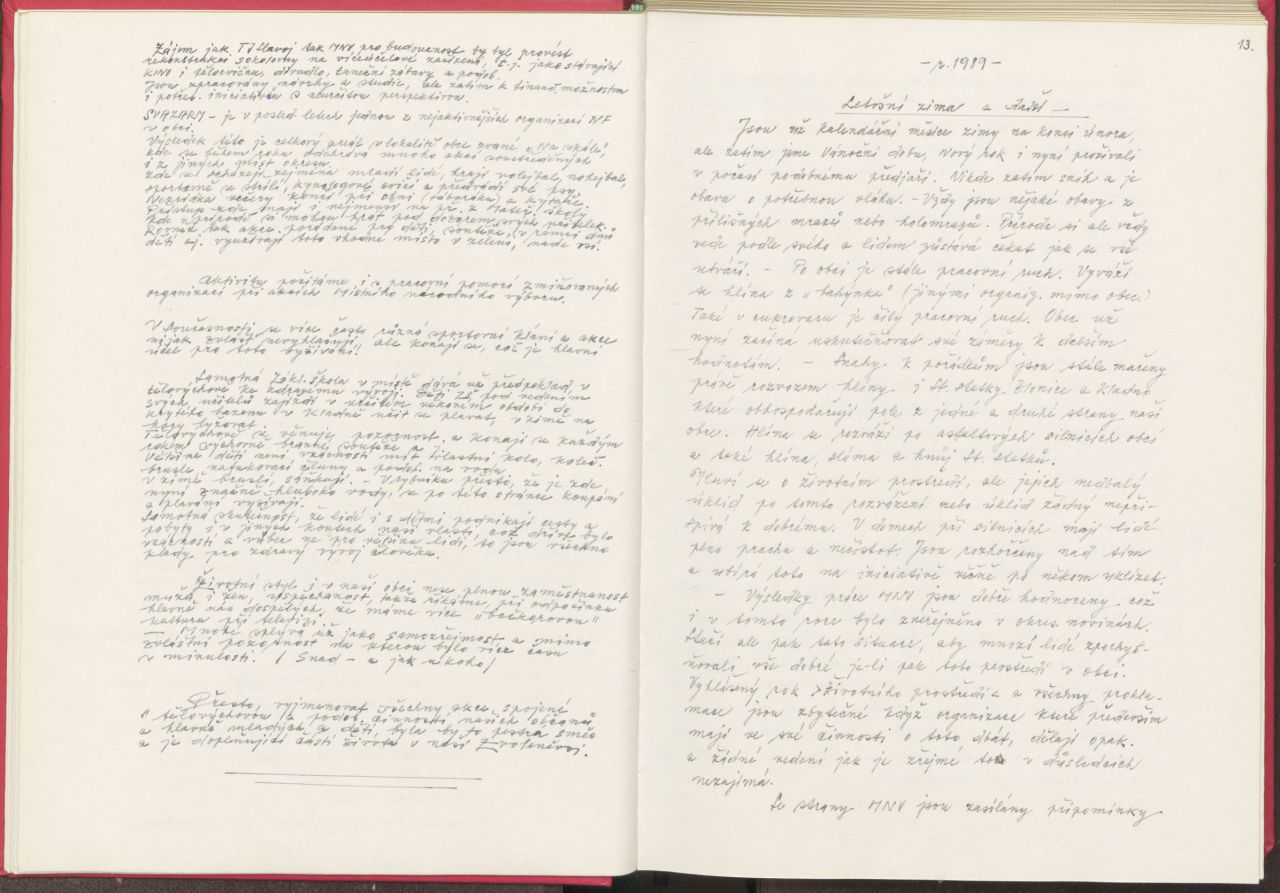 Zájem jak TJ Slavoj tak MNV pro budoucnost by byl provést
rekonstrukci Sokolovny na víceúčelové zařízení, t.j. jako stávající
kino i tělocvičnu, divadlo, taneční zábavy a podob.
Jsou zpracovány návrhy a studie, ale zatím k finanč. možnostem
i potřeb. iniciativám s neurčitou perspektivou.
SVAZARM – je v posled. letech jednou z nejaktivnějších organizací NF
v obci.
Výsledek této je celkový areál v lokalitě obce zvané „Na skále",
kde se během roku odehrává mnoho akcí soustředěných
i z jiných míst okresu.
Zde se scházejí zejména mladí lidé, hrají volejbal, nohejbal,
sportovně se střílí, kynologové cvičí a předvádí své psy.
Nezřídka večery končí při ohni (táboráku) a kytaře.
Přístup zde mají i nejmenší na př. z Mateř. školy
kde v přírodě si mohou hrát pod dozorem svých učitelek.
Rovněž tak akce pořádané pro děti, soutěže, v rámci dnů
dětí aj. využívají toto vhodné místo v zeleni, nade vsí.
Aktivity počítáme i s pracovní pomocí zmiňovaných
organizací při akcích Místního národního výboru.
V současnosti se více často různá sportovní klání a akce
nijak zvlášť nevyhlašují, ale konají se, což je hlavní
účel pro toto vyžívání!
Samotná Zákl. škola v místě dává už předpoklad v
tělovýchově ke zdravému vývoji. Děti ZŠ pod vedením
svých učitelů zajíždí v určitém věkovém období do
krytého bazénu v Kladně učit se plavat, v zimě na
hory lyžovat.
Tělovýchově se věnuje pozornost a konají se každým
rokem výchovné branné soutěže a
Většině dětí není vzácností mít vlastní kolo, koleč.
brusle, nafukovací čluny a podob. na vodu.
V zimě bruslí, sáňkují. – V rybníku přesto, že je zde
nyní značně hluboko vody, se po této stránce koupání
a plavání vyžívají.
Samotná skutečnost, že lidé i s dětmi podnikají cesty a
pobyty i v jiných koutech naší vlasti, což dříve bylo
vzácností a vůbec ne pro většinu lidí, to jsou všechno
klady pro zdravý vývoj člověka.
Životní styl i v naší obci nese plnou zaměstnanost
mužů i žen, uspěchanost, takže říkáme, při odpočinku
hlavně nás dospělých, že máme více „bačkorovou"
kulturu při televizi.
— Mnohé splývá už jako samozřejmost a mimo
zvláštní pozornost na kterou bylo více času
v minulosti. (Snad – a jak u koho)
Přesto, vyjmenovat všechny akce spojené
s tělovýchovou a podob. činností, našich občanů
a hlavně mladých a dětí, byla by to pestrá směs
a je doplňující částí života v naší Zvoleněvsi.
13.
– r. 1989 –
Letošní zima a
Jsou už kalendářní měsíce zimy na konci února,
ale zatím jsme Vánoční dobu, Nový rok i nyní prožívali
v počasí podobnému předjaří. Nikde zatím sníh a je
obava o potřebnou vláhu. – Vždy jsou nějaké obavy z
přílišných mrazů nebo holomrazů. Příroda si ale vždy
vede podle svého a lidem zůstává čekat jak se vše
utváří. – Po obci je stále pracovní ruch. Vyváží
se hlína z „bahýnka" (jinými organiz. mimo obec.)
Také v cukrovaru je čilý pracovní ruch. Obec už
nyní začína uskutečňovat své záměry k dalším
hodnotám. – Snahy k pořádkům jsou stále mařeny
právě rozvozem hlíny i St. statky Zlonice a Kladno
které obhospodařují pole z jedné a druhé strany naší
obce. Hlína se rozváží po asfaltových silnicích obcí
a také hlína, sláma a hnůj St. statků.
Mluví se o životním prostředí, ale jejich nedbalý
úklid po tomto rozvážení nebo úklid žádný nepři-
spívá k dobrému. V domech při silnicích mají lidé
plno prachu a nečistot. Jsou rozhořčeny nad tím
a ubírá toto na iniciativě věčně po někom uklízet.
– Výsledky práce MNV jsou dobře hodnoceny což
i v tomto roce bylo zveřejněno v okres. novinách.
Stačí ale pak tato situace, aby mnozí lidé zpochyb-
ňovali vše dobré je-li pak toto prostředí v obci.
Vyhlášený rok >životního prostředí< a všechny prokla-
mace jsou zbytečné když organizace které především
mají ve své činnosti o toto dbát, dělají opak.
a žádné vedení jak je zřejmé to v důsledcích
nezajímá.
Se strany MNV jsou zasílány připomínky